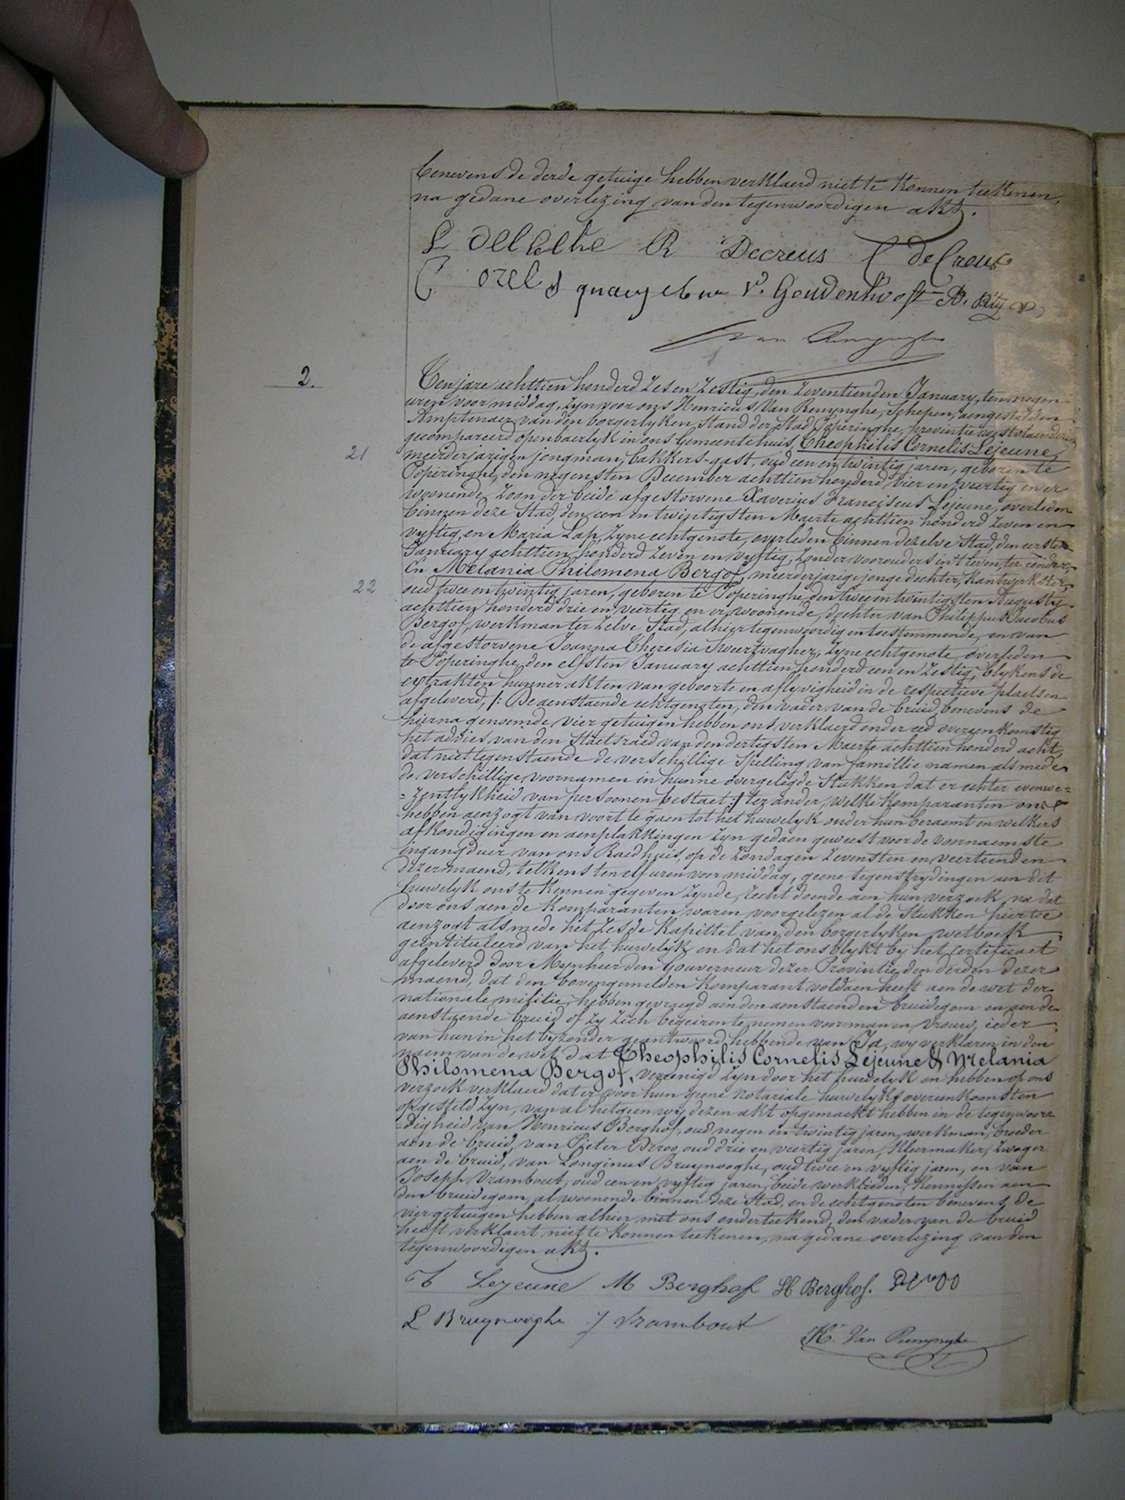 benevens de derde getuige hebben verklaerd niet te konnen teekenen,
na gedane overlezing van den tegenwoordigen akt.
R Decreus
V. Goudenhooft
Van Renynghe
2.
Ten jare achttien honderd zes en zestig, den zeventienden January, ten negen
uren voor middag, zyn voor ons Henricus Van Renynghe, Schepen, aengestelden
Amptenaer van den borgerlyken stand der stad Poperinghe, provintie westvlaenderen
gecompareerd openbaerlyk in ons Gemeentehuis, Theophilis Cornelis Lejeune,
21
meerderjarigen jongman, bakkers-gast, oud een en twintig jaren, geboren te
Poperinghe, den negensten December achttien honderd vier en veertig en er
woonende, Zoon der beide afgestorvene Xaverius Franciscus Lejeune, overleden
binnen deze Stad, den een en twintigsten Maerte achttien honderd zeven en
vyftig, en Maria Lap, zyne echtgenote, overleden binnen dezelve Stad, den eersten
January achttien honderd zeven en vyftig, zonder voorouders in t'leven, ter eendere
En Melania Philomena Bergof, meerderjarige jonge dochter, Kantwerkster,
22
oud twee en twintig jaren, geboren te Poperinghe, den twee en twintigsten Augusty
achttien honderd drie en veertig en er woonende, dochter van Philippus Jacobus
Bergof, werkman ter zelve Stad, alhier tegenwoordig en toestemmende, en van
de afgestorvene Joanna Theresia Sweertvagher, zyne echtgenote, overleden
te Poperinghe, den elfsten January achttien honderd een en zestig, blykens de
extrakten hunner akten van geboorte en aflyvigheid in de respective plaetsen
afgeleverd, /: De aenstaende echtgenoten, den vader van de bruid benevens de
hierna genoemde vier getuigen hebben ons verklaerd onder eed overeenkomstig
het advies van den Staetsraed van den dertigsten Maerte achttien honderd acht,
dat niettegenstaende de verschillige spelling van familie namen als mede
de verschillige voornamen in hunne overgelegde Stukken dat er echter eenwe-
-zentlykheid van persoonen bestaet :/ ter ander, welke komparanten ons
hebben aenzogt van voort te gaen tot het huwelyk onder hun beraemt en welkers
afkondigingen en aenplakkingen zyn gedaen geweest voor de voornaemste
ingangdeur van ons Raedhuis, op de zondagen zevensten en veertienden
dezer maend, telkens ten elf uren voor middag, geene tegenstrydingen aen dit
huwelyk ons te kennen gegeven zynde, recht doende aen hun verzoek, na dat
door ons aen de komparanten waren voorgelezen al de Stukken hier toe
aenzogt als mede het zesde kapittel van den borgerlyken wetboek
geïntituleerd van het huwelyk en dat het ons blykt by het certificaet
afgeleverd door Mynheer den Gouverneur dezer Provintie, den derden dezer
maend, dat den bovengemelden komparant voldaen heeft aen de wet der
nationale militie, hebben gevraegd aen den aenstaenden bruidegom en aen de
aenstaende bruid of zy zich begeiren te nemen voor man en vrouw, ieder
van hun in het byzonder geantwoord hebbende van Ja, wy verklaren in den
naem van de wet dat Theophilis Cornelis Lejeune & Melania
Philomena Bergof, vereenigd zyn door het huwelyk en hebben op ons
verzoek verklaerd dat er voor hun geene notariale huwelyks overeenkomsten
opgesteld zyn, van al hetgeen wy dezen akt opgemaekt hebben in de tegenwoor-
digheid van Henricus Berghof, oud negen en twintig jaren, werkman, broeder
aen de bruid, van Pieter Devoo, oud drie en veertig jaren, Kleermaker, zwager
aen de bruid, van Longinus Bruynooghe, oud twee en vyftig jaren, en van
Joseph Vrambout, oud een en vyftig jaren, beide werklieden, kennissen aen
den bruidegom, al woonende binnen deze Stad, en de echtgenoten benevens de
vier getuigen hebben alhier met ons onderteekend, den vader van de bruid
heeft verklaert niet te konnen teekenen, na gedane overlezing van den
tegenwoordigen akt.
T Lejeune M Berghof H Berghof. Devoo
L Bruynooghe J Vrambout
H. Van Renynghe